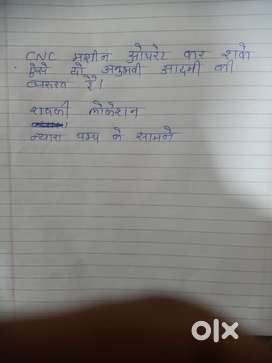 CNC मशीन ओपरेट कार शके
ऐसे दो अनुभवी आदमी की
जरूरत है।
रावकी लोकेशन
न्यारा पम्प के सामने
olx